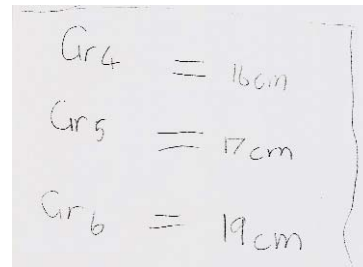 Gr4 = 16cm
Gr5 = 17cm
Gr6 = 19cm